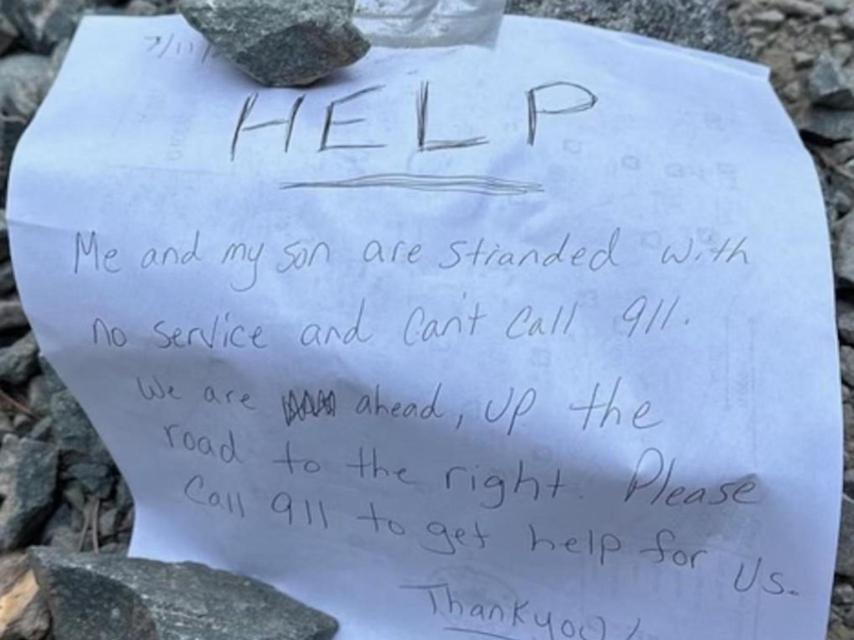 7/11/
HELP
Me and my son are stranded with
no service and Can't Call 911.
We are ahead, UP the
road to the right. Please
Call 911 to get help for Us.
Thankyou!